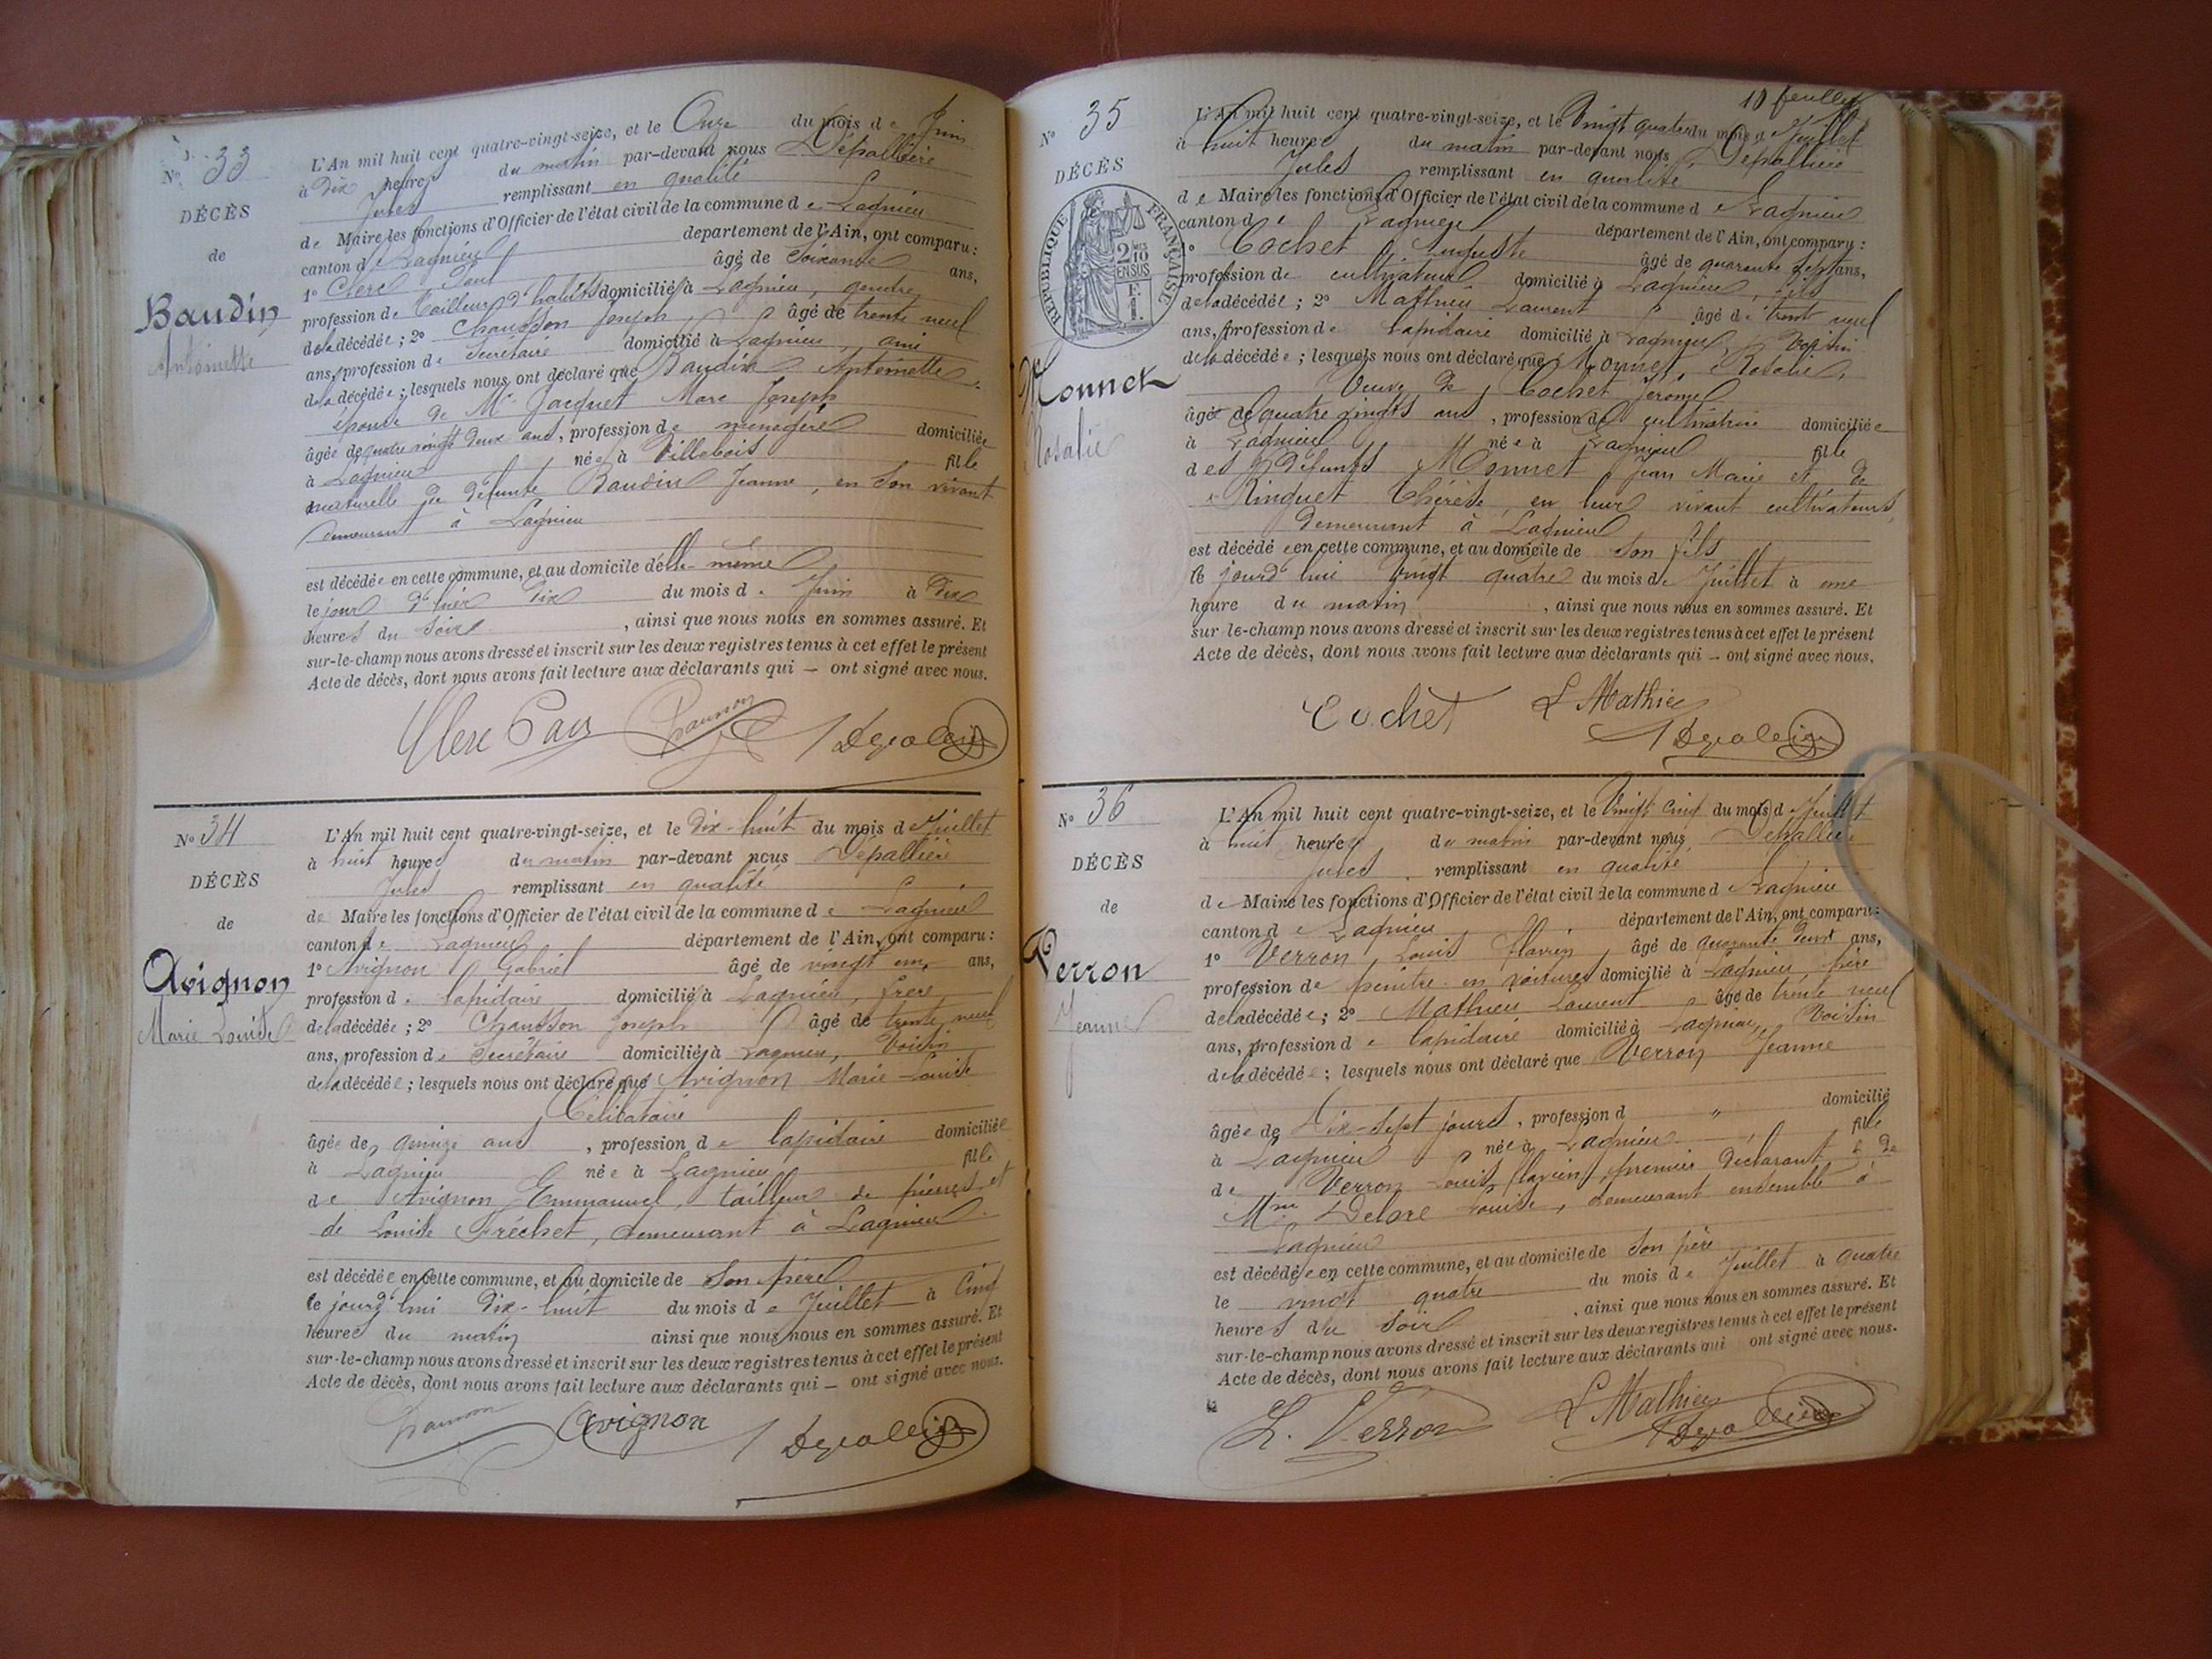 N° 33
DÉCÈS
de
Baudin
Antoinette
L'An mil huit cent quatre-vingt-seize, et le Onze du mois de Juin
à Dix heures du matin par-devant nous Dépallière
Jules remplissant en qualité
de Maire les fonctions d'Officier de l'état civil de la commune de Lagnieu
canton de Lagnieu département de l'Ain, ont comparu :
1° Clerc Paul âgé de soixante ans,
profession de Tailleur d'habits domicilié à Lagnieu, gendre
de la décédée ; 2° Chausson Joseph âgé de trente neuf
ans, profession de Secrétaire domicilié à Lagnieu, ami
de la décédée ; lesquels nous ont déclaré que Baudin Antoinette,
épouse de Mr Jacquet Marc Joseph
âgée de quatre vingt deux ans, profession de ménagère domiciliée
à Lagnieu née à Villebois fille
naturelle de défunte Baudin Jeanne, en son vivant
demeurant à Lagnieu
est décédée en cette commune, et au domicile d'elle-même
le jour d'hier Dix du mois de Juin à Dix
heures du soir, ainsi que nous nous en sommes assuré. Et
sur-le-champ nous avons dressé et inscrit sur les deux registres tenus à cet effet le présent
Acte de décès, dont nous avons fait lecture aux déclarants qui — ont signé avec nous.
Clerc Paul Chausson J Depallière
N° 34
DÉCÈS
de
Avignon
Marie Louise
L'An mil huit cent quatre-vingt-seize, et le Dix-huit du mois de Juillet
à huit heures du matin par-devant nous Dépallière
Jules remplissant en qualité
de Maire les fonctions d'Officier de l'état civil de la commune de Lagnieu
canton de Lagnieu département de l'Ain, ont comparu :
1° Avignon Gabriel âgé de vingt un ans,
profession de lapidaire domicilié à Lagnieu, frère
de la décédée ; 2° Chausson Joseph âgé de trente neuf
ans, profession de Secrétaire domicilié à Lagnieu, Voisin
de la décédée ; lesquels nous ont déclaré que Avignon Marie Louise
Célibataire
âgée de quinze ans, profession de lapidaire domiciliée
à Lagnieu née à Lagnieu fille
de Avignon Emmanuel, tailleur de pierres et
de Louise Fréchet, demeurant à Lagnieu
est décédée en cette commune, et au domicile de son père
le jourd'hui Dix-huit du mois de Juillet à Cinq
heures du matin ainsi que nous nous en sommes assuré. Et
sur-le-champ nous avons dressé et inscrit sur les deux registres tenus à cet effet le présent
Acte de décès, dont nous avons fait lecture aux déclarants qui — ont signé avec nous.
Chausson Avignon J Depallière
10 feuillet
N° 35
DÉCÈS
RÉPUBLIQUE FRANÇAISE
2/10 EN SUS
Monnet
Rosalie
L'An mil huit cent quatre-vingt-seize, et le Vingt quatre du mois de Juillet
à huit heures du matin par-devant nous Dépallière
Jules remplissant en qualité
de Maire les fonctions d'Officier de l'état civil de la commune de Lagnieu
canton de Lagnieu département de l'Ain, ont comparu :
1° Cochet Auguste âgé de quarante sept ans,
profession de cultivateur domicilié à Lagnieu, fils
de la décédée ; 2° Mathieu Laurent âgé de trente neuf
ans, profession de lapidaire domicilié à Lagnieu, Voisin
de la décédée ; lesquels nous ont déclaré que Monnet, Rosalie,
Veuve de Cochet Jérôme
âgée de quatre vingts ans, profession de cultivatrice domiciliée
à Lagnieu née à Lagnieu fille
des défunts Monnet Jean Marie et de
Rinquet Thérèse, en leur vivant cultivateurs,
demeurant à Lagnieu
est décédée en cette commune, et au domicile de son fils
le jourd'hui vingt quatre du mois de Juillet à une
heure du matin, ainsi que nous nous en sommes assuré. Et
sur-le-champ nous avons dressé et inscrit sur les deux registres tenus à cet effet le présent
Acte de décès, dont nous avons fait lecture aux déclarants qui — ont signé avec nous.
Cochet L Mathieu
J Depallière
N° 36
DÉCÈS
de
Verron
Jeanne
L'An mil huit cent quatre-vingt-seize, et le Vingt cinq du mois de Juillet
à huit heures du matin par-devant nous Dépallière
Jules remplissant en qualité
de Maire les fonctions d'Officier de l'état civil de la commune de Lagnieu
canton de Lagnieu département de l'Ain, ont comparu :
1° Verron, Louis Flavien, âgé de quarante deux ans,
profession de peintre en voitures domicilié à Lagnieu, père
de la décédée ; 2° Mathieu Laurent âgé de trente neuf
ans, profession de lapidaire domicilié à Lagnieu, Voisin
de la décédée ; lesquels nous ont déclaré que Verron Jeanne
âgée de Dix-sept jours, profession d " domicilié
à Lagnieu née à Lagnieu fille
de Verron Louis Flavien, premier déclarant, & de
Mme Delore Louise, demeurant ensemble à
Lagnieu
est décédée en cette commune, et au domicile de son père
le vingt quatre du mois de Juillet à quatre
heures du soir, ainsi que nous nous en sommes assuré. Et
sur-le-champ nous avons dressé et inscrit sur les deux registres tenus à cet effet le présent
Acte de décès, dont nous avons fait lecture aux déclarants qui ont signé avec nous.
L. Verron L Mathieu
J Depallière